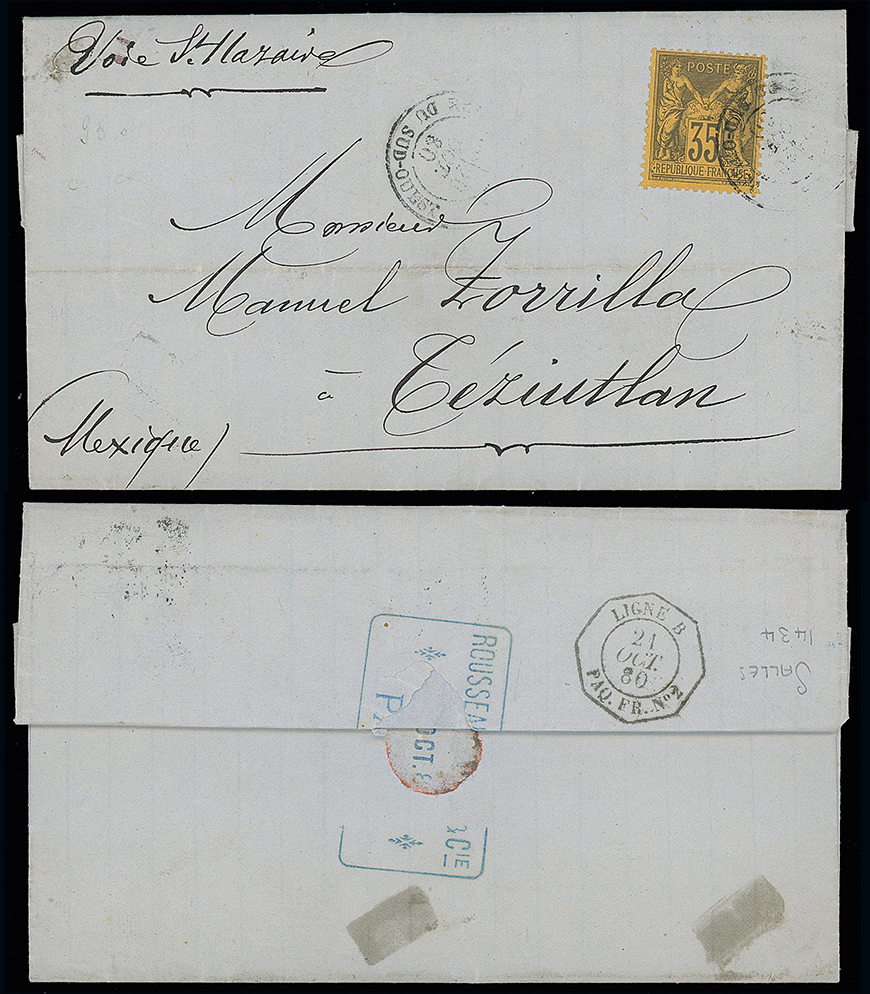 Voie St. Nazaire
POSTE
35
REPUBLIQUE FRANÇAISE
DU SUD-OUEST
80
Monsieur
Manuel Zorrilla
à Téziutlan
(Mexique)
LIGNE B
21
OCT.
80
PAQ. FR. No 2
SALLES
1434
OCT.
& CIE